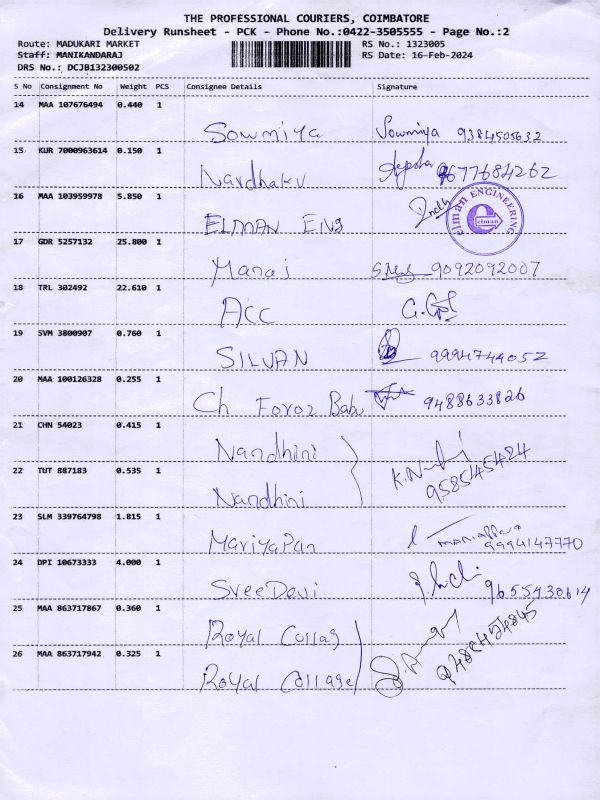 THE PROFESSIONAL COURIERS, COIMBATORE
Delivery Runsheet - PCK - Phone No.:0422-3505555 - Page No.:2
Route: MADUKARI MARKET RS No.: 1323005
Staff: MANIKANDARAJ RS Date: 16-Feb-2024
DRS No.: DCJB132300502
S No Consignment No Weight PCS Consignee Details Signature
14 MAA 107676494 0.440 1
Sowmiya Sowmiya 9384505632
15 KUR 7000963614 0.150 1
Nardhaku 9677684262
16 MAA 103959978 5.850 1
ELMAN ENg elman ENGINEERING elman
17 GDR 5257132 25.800 1
Manoj 9092092007
18 TRL 302492 22.610 1
ACC
19 SVM 3800907 0.760 1
SILVAN 9994744052
20 MAA 100126328 0.255 1
Ch Foroz Babu 9488633826
21 CHN 54023 0.415 1
Nandhini
22 TUT 887183 0.535 1
Nandhini 958545424
23 SLM 339764798 1.815 1
MariyaPan 9994147770
24 DPI 10673333 4.000 1
SreeDevi 9655430614
25 MAA 863717867 0.360 1
Royal Collag
26 MAA 863717942 0.325 1
Royal Collage